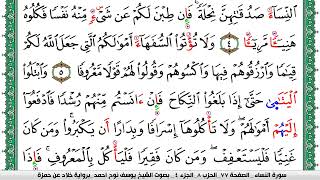 النِّسَآءَ صَدُقَٰتِهِنَّ نِحْلَةً ۚ فَإِن طِبْنَ لَكُمْ عَن شَىْءٍ مِّنْهُ نَفْسًا فَكُلُوهُ
هَنِيٓـًٔا مَّرِيٓـًٔا ٤ وَلَا تُؤْتُوا۟ ٱلسُّفَهَآءَ أَمْوَٰلَكُمُ ٱلَّتِى جَعَلَ ٱللَّهُ لَكُمْ
قِيَٰمًا وَٱرْزُقُوهُمْ فِيهَا وَٱكْسُوهُمْ وَقُولُوا۟ لَهُمْ قَوْلًا مَّعْرُوفًا ٥ وَٱبْتَلُوا۟
ٱلْيَتَٰمَىٰ حَتَّىٰٓ إِذَا بَلَغُوا۟ ٱلنِّكَاحَ فَإِنْ ءَانَسْتُم مِّنْهُمْ رُشْدًا فَٱدْفَعُوٓا۟
إِلَيْهُمْ أَمْوَٰلَهُمْ ۖ وَلَا تَأْكُلُوهَآ إِسْرَافًا وَبِدَارًا أَن يَكْبَرُوا۟ ۚ وَمَن كَانَ
غَنِيًّا فَلْيَسْتَعْفِفْ ۖ وَمَن كَانَ فَقِيرًا فَلْيَأْكُلْ بِٱلْمَعْرُوفِ ۚ فَإِذَا
سورة النساء . الصفحة ٧٧ الحزب ٨ . الجزء ٤ . بصوت الشيخ يوسف نوح احمد . برواية خلاد عن حمزة